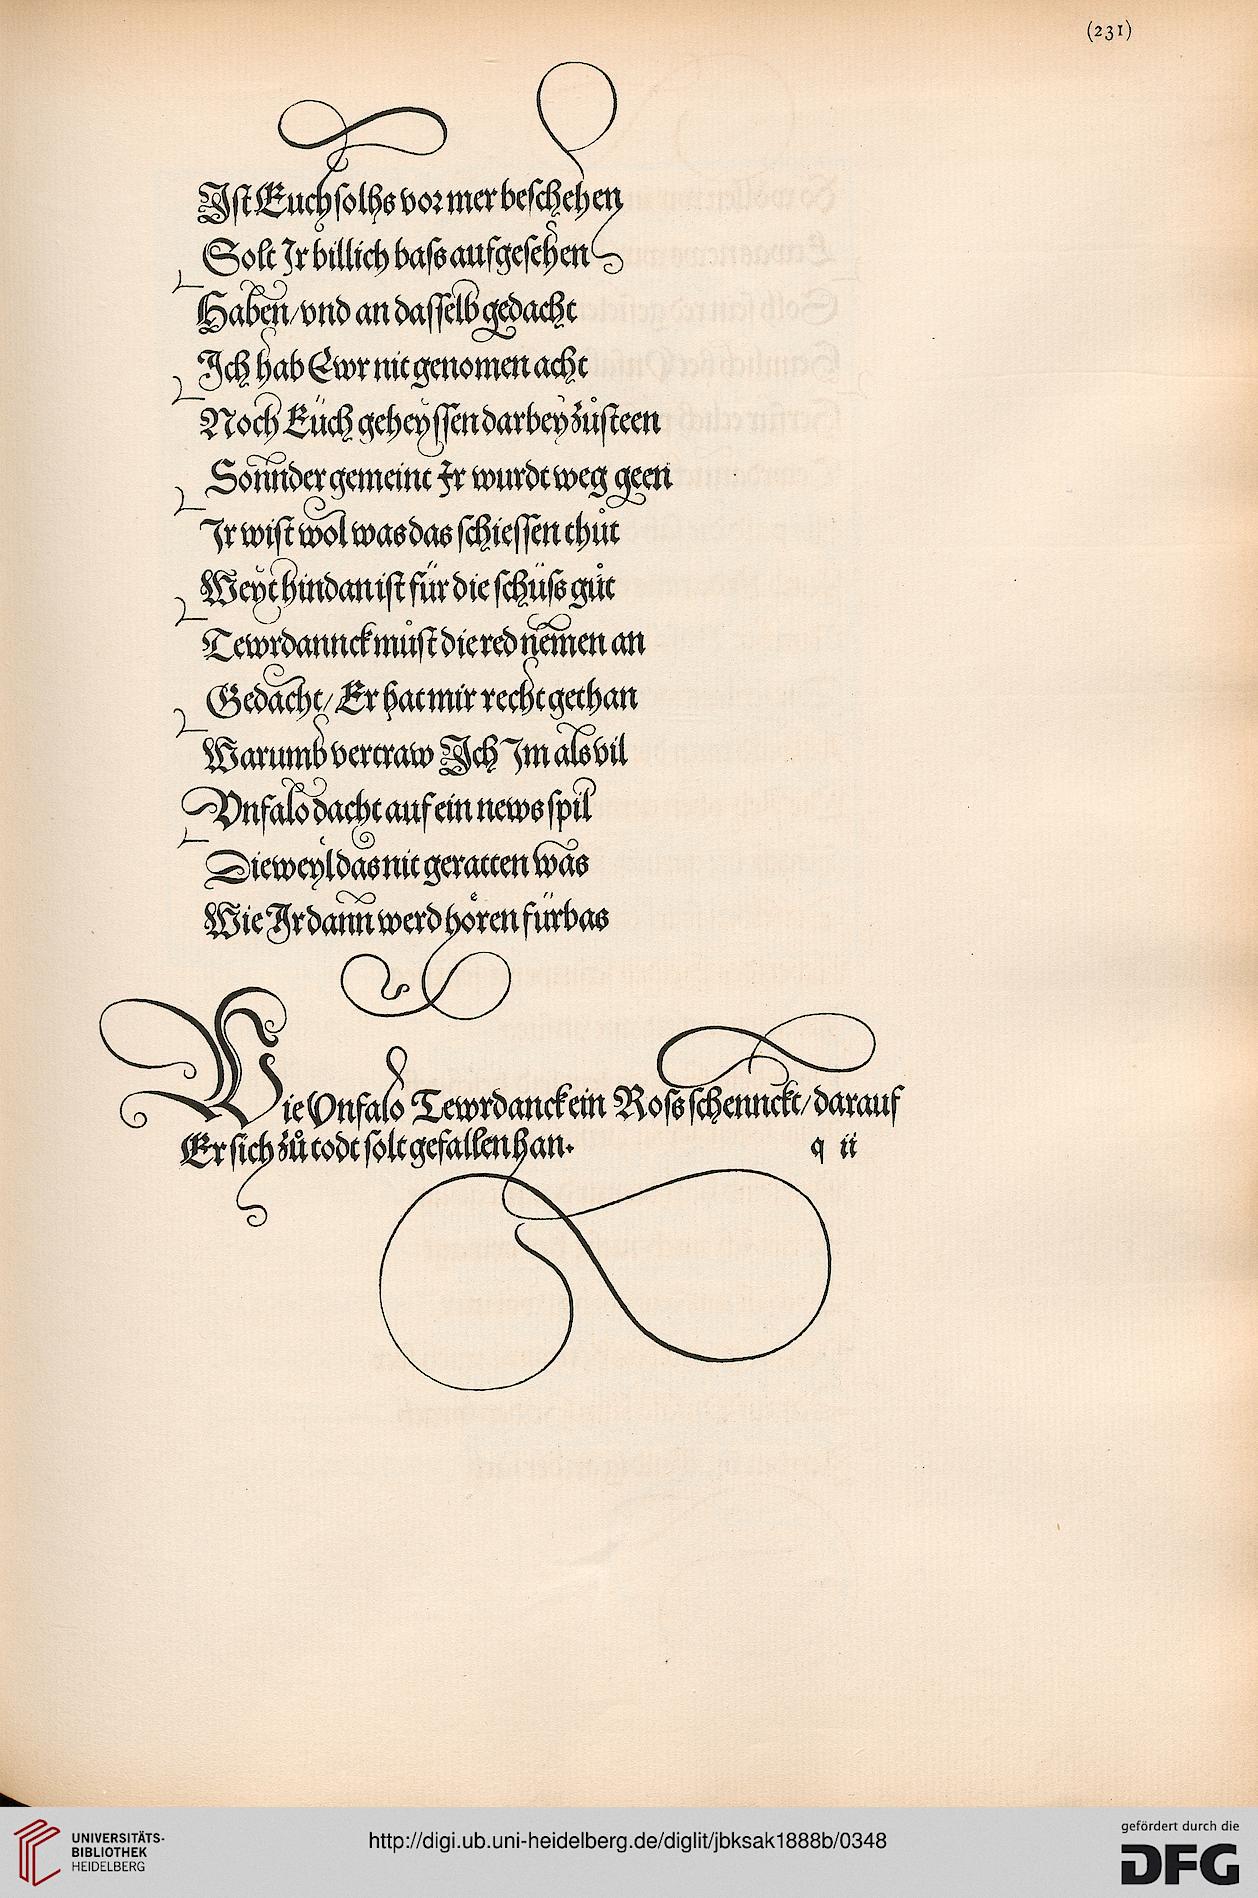 (231)
Ist Euch solhs vor mer beschehen
Solt Ir billich bass aufgesehen
Haben/vnd an dasselb gedacht
Ich hab Ewr nit genomen acht
Noch Eüch geheyssen darbey zůsteen
Sonnder gemeint Ir wurdt weg geen
Ir wist wol was das schiessen thůt
Weyt hindan ist für die schüss gůt
Tewrdannck můst die red nemen an
Gedacht/Er hat mir recht gethan
Warumb vertraw Ich Im als vil
Vnfalo dacht auf ein news spil
Dieweyl das nit geratten was
Wie Ir dann werd hören fürbas
Wie Vnfalo Tewrdanck ein Ross schennckt/darauf
Er sich zů todt solt gefallen han.
q ii
UNIVERSITÄTS-
BIBLIOTHEK
HEIDELBERG
http://digi.ub.uni-heidelberg.de/diglit/jbksak1888b/0348
gefördert durch die
DFG